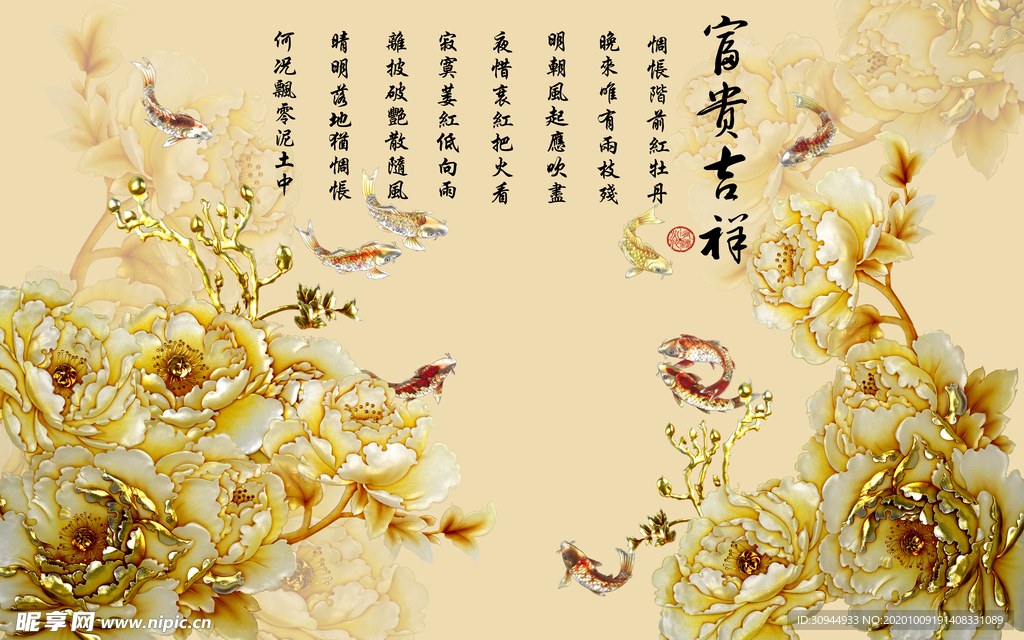 富贵吉祥
惆悵階前紅牡丹
晚來唯有兩枝殘
明朝風起應吹盡
夜惜衰紅把火看
寂寞萎紅低向雨
離披破艷散隨風
晴明落地猶惆悵
何況飄零泥土中
昵享网 www.nipic.cn
ID:30944933 NO:20201009191408331089